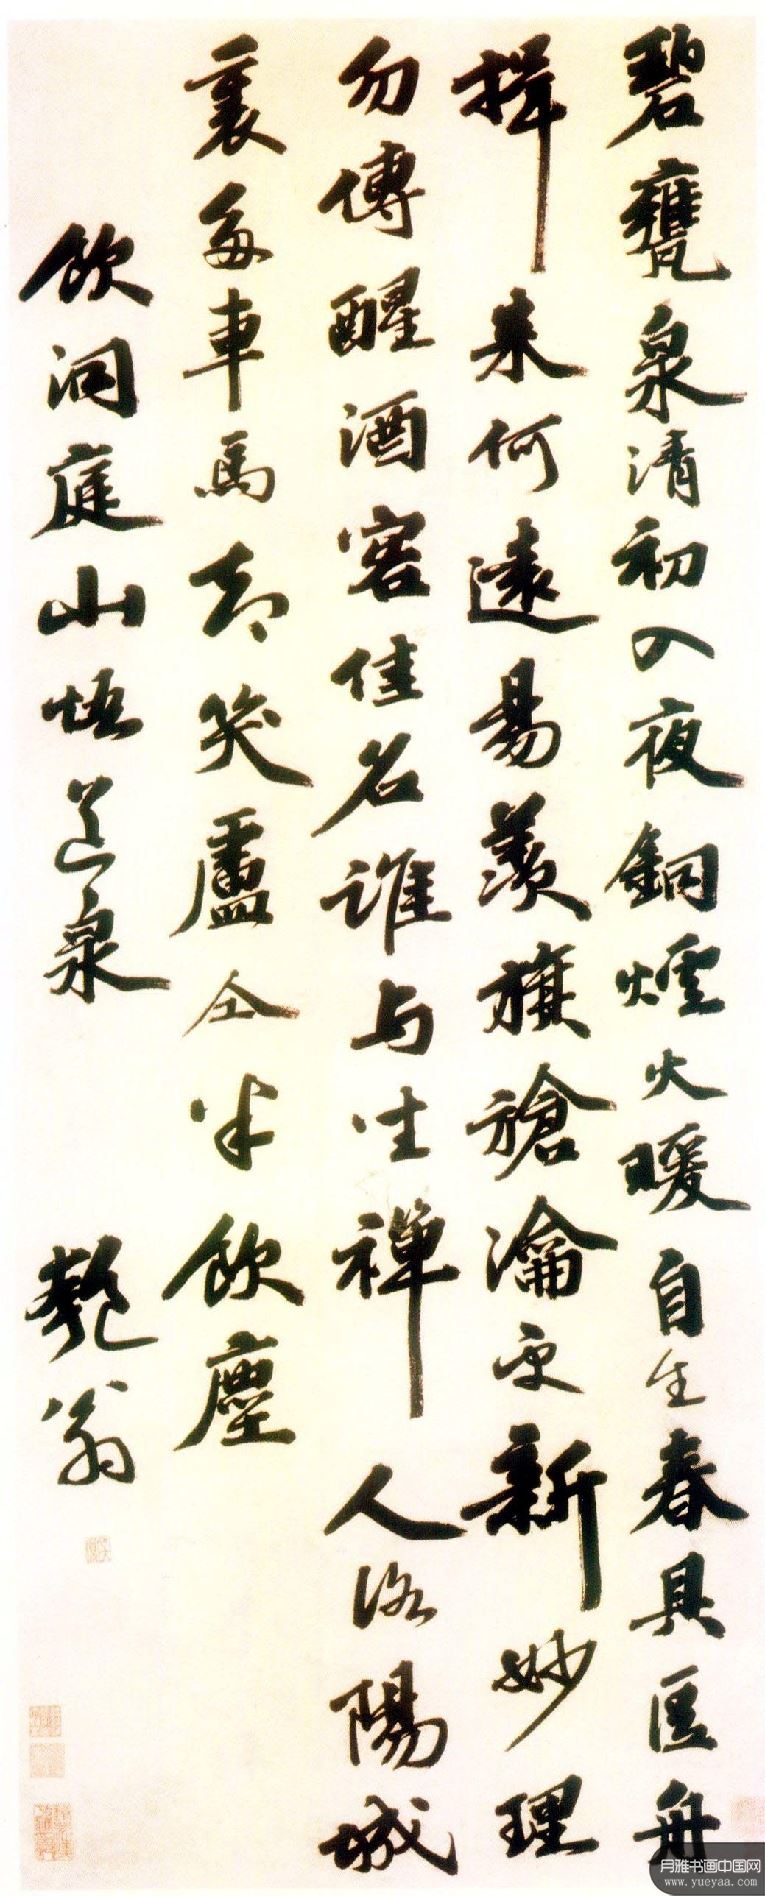 碧甕泉清初入夜銅爐火暖自生春具區舟
楫來何遠陽羨旗槍瀹更新妙理
勿傳醒酒客佳名誰與坐禪人洛陽城
裏多車馬却笑盧仝半飲塵
飲洞庭山悟道泉
匏翁
月雅书画中国网
www.yueyaa.com